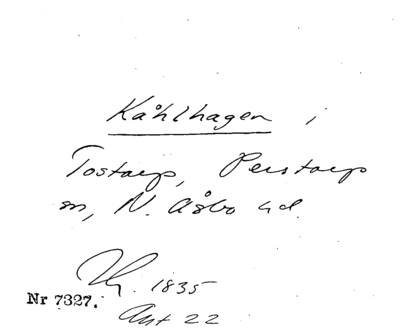 Kåhlhagen i
Tostarp, Perstorp
sn, N. Åsbo hd.
1835
Nr 7327.
Akt 22